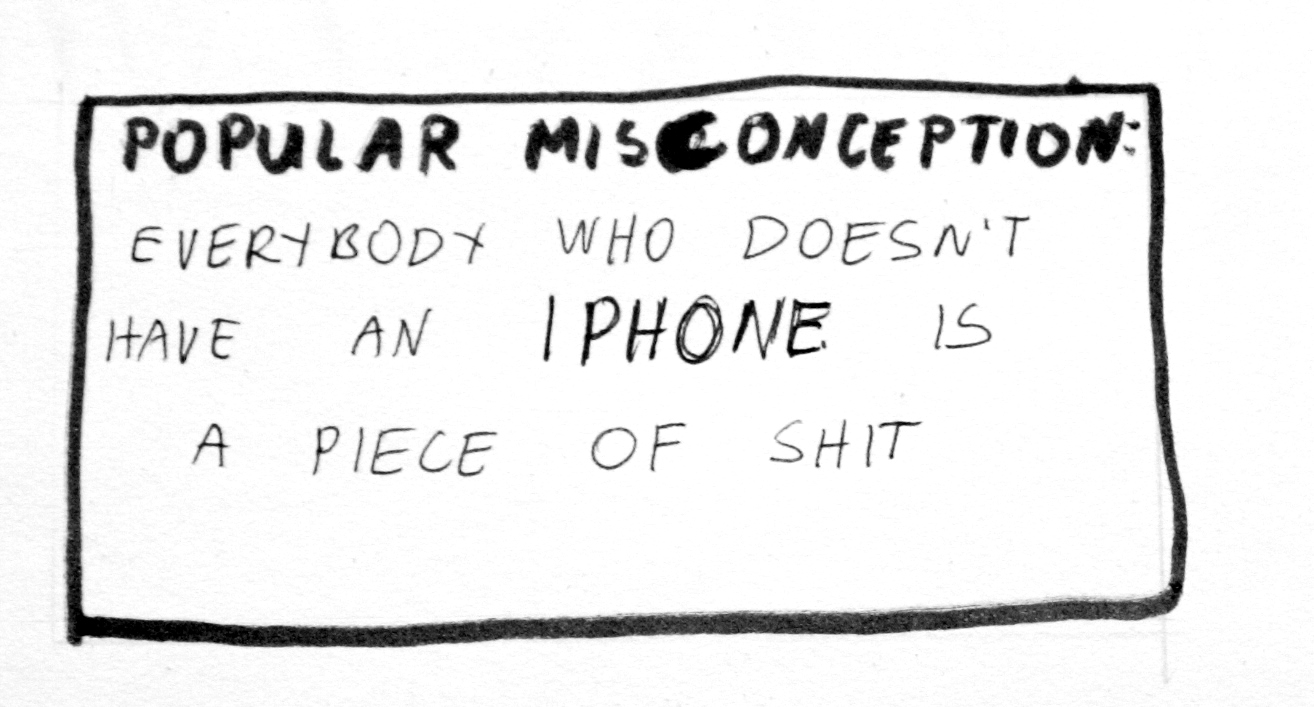 POPULAR MISCONCEPTION:
EVERYBODY WHO DOESN'T
HAVE AN IPHONE IS
A PIECE OF SHIT